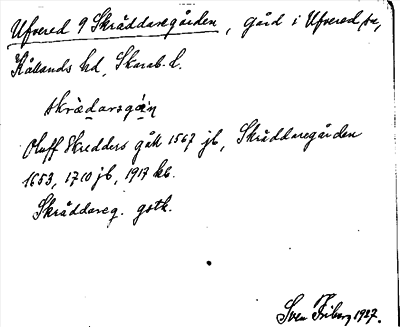 Ufvered 9 Skräddaregården, gård i Ufvered, sn,
Kållands hd, Skarab. l.
skrädarsgån
Oluff Skredders gåll 1567 jb, Skräddaregården
1653, 1710 jb, 1917 kb.
Skräddareg. gstk.
Sven Friberg 1927.